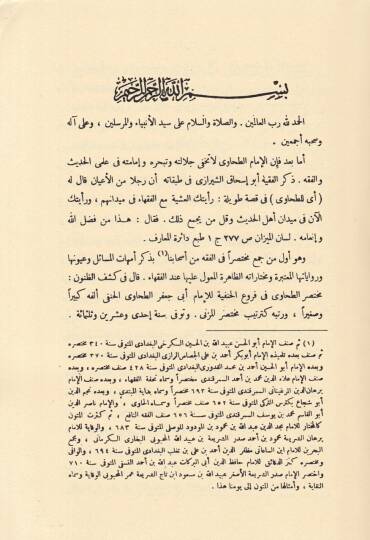 بسم الله الرحمن الرحيم
الحمد لله رب العالمين . والصلاة والسلام على سيد الأنبياء والمرسلين ، وعلى آله
وصحبه أجمعين .
أما بعد فإن الإمام الطحاوى لا تخفى جلالته وتبحره وإمامته فى علمى الحديث
والفقه . ذكر الفقيه أبو إسحاق الشيرازى فى طبقاته أن رجلا من الأعيان قال له
( أى للطحاوى ) فى قصة طويلة : رأيتك العشية مع الفقهاء فى ميدانهم ، ورأيتك
الآن فى ميدان أهل الحديث وقل من يجمع ذلك . فقال : هذا من فضل الله
وإنعامه . لسان الميزان ص ٢٧٧ ج ١ طبع دائرة المعارف .
وهو أول من جمع مختصراً فى الفقه من أصحابنا(١) بذكر أمهات المسائل وعيونها
ورواياتها المعتبرة ومختاراته الظاهرة المعول عليها عند الفقهاء . قال فى كشف الظنون :
مختصر الطحاوى فى فروع الحنفية للإمام أبى جعفر الطحاوى الحنفى ألفه كبيراً
وصغيراً ، ورتبه كترتيب مختصر المزنى . وتوفى سنة إحدى وعشرين وثلثمائة .
(١) ثم صنف الإمام أبو الحسن عبيد الله بن الحسين الكرخى البغدادى المتوفى سنة ٣٤٠ مختصره
ثم صنف بعده تلميذه الإمام أبو بكر أحمد بن على الجصاص الرازى البغدادى المتوفى سنة ٣٧٠ مختصره
وبعده الإمام أبو الحسين أحمد بن محمد القدورى البغدادى المتوفى سنة ٤٢٨ مختصره ، وبعده
صنف الإمام علاء الدين محمد بن أحمد السمرقندى مختصراً وسماه تحفة الفقهاء ، وبعده صنف الإمام
برهان الدين المرغينانى السمرقندى المتوفى سنة ٦٩٣ مختصراً وسماه بداية المبتدى ، وبعده نجم الدين
أبو شجاع بكترس التركى المتوفى سنة ٦٥٢ صنف مختصراً وسماه الحاوى ، والإمام ناصر الدين
أبو القاسم محمد بن يوسف السمرقندى المتوفى سنة ٦٥٦ صنف الفقه النافع ، ثم كثرت المتون
كالمختار للإمام مجد الدين عبد الله بن محمود بن المودود الموصلى المتوفى سنة ٦٨٣ ، والوقاية للإمام
برهان الشريعة محمود بن أحمد صدر الشريعة بن عبيد الله المحبوبى البخارى الكرمانى ، ومجمع
البحرين للإمام ابن الساعاتى مظفر الدين أحمد بن على بن تغلب البغدادى المتوفى سنة ٦٩٤ ، والوافى
ومختصره كنز الدقائق للإمام حافظ الدين أبى البركات عبد الله بن أحمد النسفى المتوفى سنة ٧١٠
واختصر الإمام صدر الشريعة الأصغر عبيد الله بن مسعود ابن تاج الشريعة عمر المحبوبى الوقاية وسماه
النقاية ، وأمثالها من المتون إلى يومنا هذا .